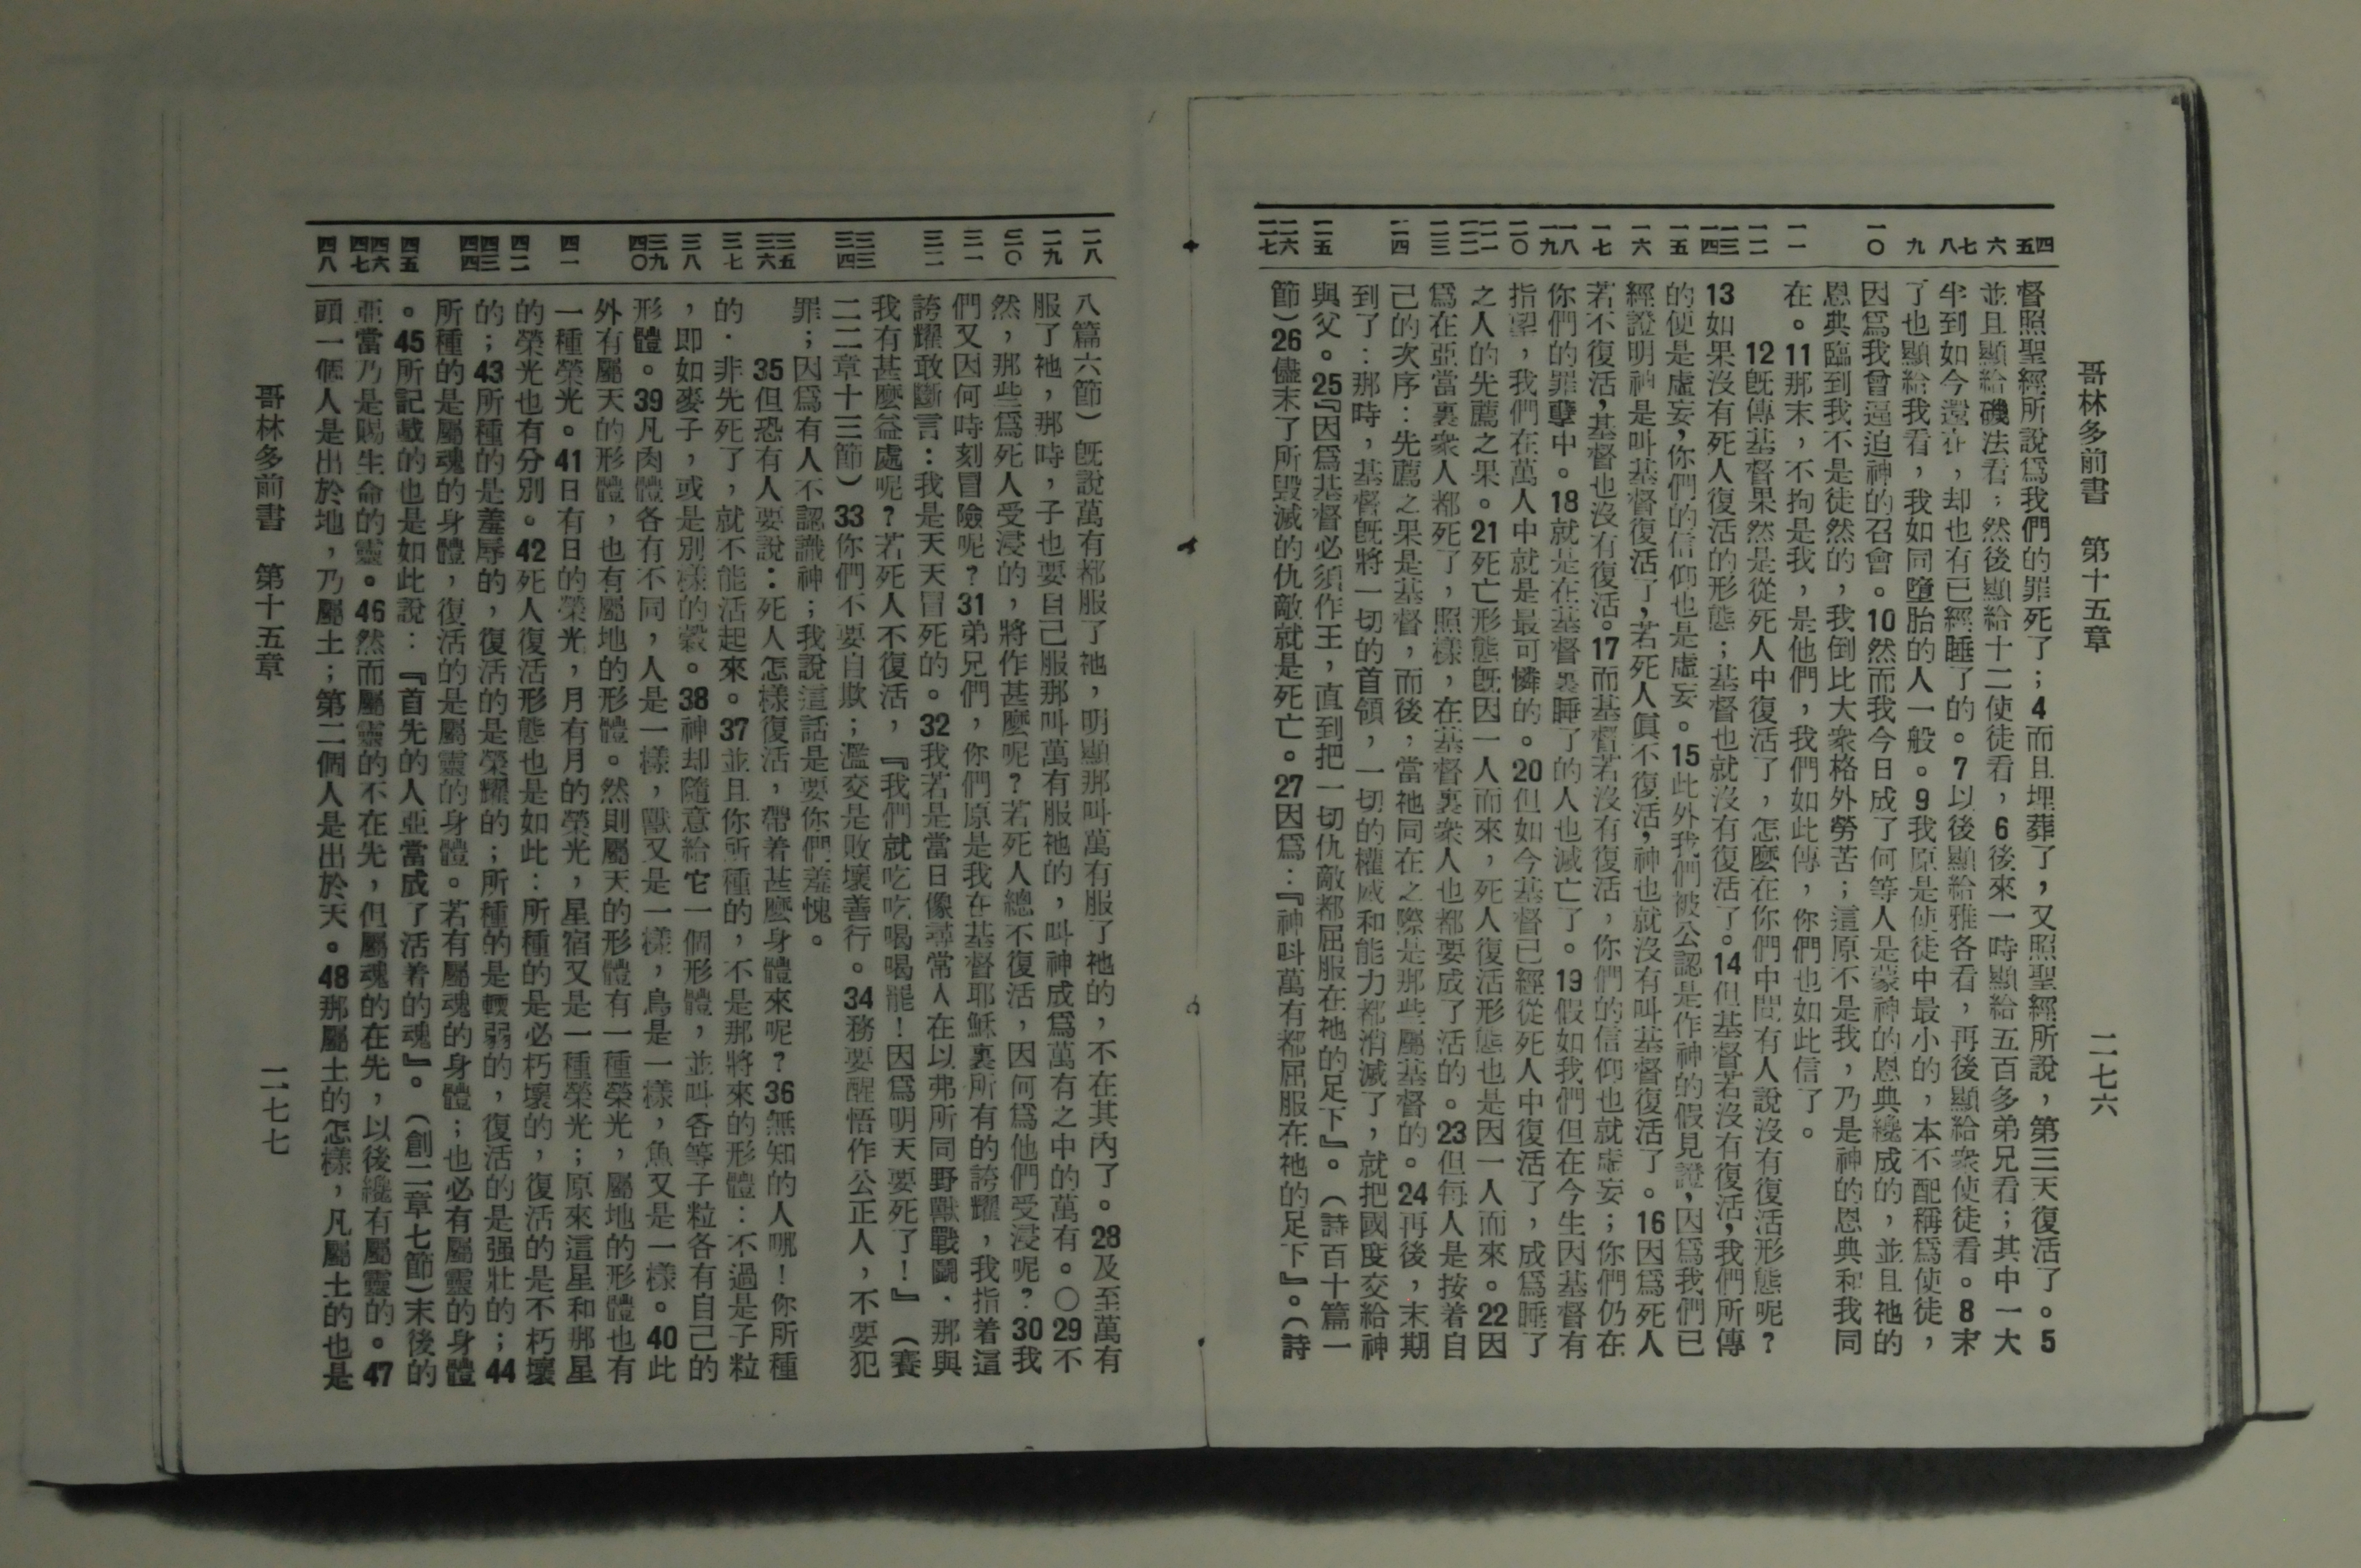 哥林多前書 第十五章 二七六
四 五 六 七 八 九 一〇 一一 一二 一三 一四 一五 一六 一七 一八 一九 二〇 二一 二二 二三 二四 二五 二六 二七
督照聖經所說爲我們的罪死了；4而且埋葬了，又照聖經所說，第三天復活了。5
並且顯給磯法看；然後顯給十二使徒看，6後來一時顯給五百多弟兄看；其中一大
半到如今還在，却也有已經睡了的。7以後顯給雅各看，再後顯給衆使徒看。8末
了也顯給我看，我如同墮胎的人一般。9我原是使徒中最小的，本不配稱爲使徒，
因爲我曾逼迫神的召會。10然而我今日成了何等人是蒙神的恩典纔成的，並且祂的
恩典臨到我不是徒然的，我倒比大衆格外勞苦；這原不是我，乃是神的恩典和我同
在。11那末，不拘是我，是他們，我們如此傳，你們也如此信了。
12旣傳基督果然是從死人中復活了，怎麼在你們中間有人說沒有復活形態呢？
13如果沒有死人復活的形態；基督也就沒有復活了。14但基督若沒有復活，我們所傳
的便是虛妄，你們的信仰也是虛妄。15此外我們被公認是作神的假見證，因爲我們已
經證明神是叫基督復活了，若死人眞不復活，神也就沒有叫基督復活了。16因爲死人
若不復活，基督也沒有復活。17而基督若沒有復活，你們的信仰也就虛妄；你們仍在
你們的罪孽中。18就是在基督裏睡了的人也滅亡了。19假如我們但在今生因基督有
指望，我們在萬人中就是最可憐的。20但如今基督已經從死人中復活了，成爲睡了
之人的先薦之果。21死亡形態旣因一人而來，死人復活形態也是因一人而來。22因
爲在亞當裏衆人都死了，照樣，在基督裏衆人也都要成了活的。23但每人是按着自
己的次序：先薦之果是基督，而後，當祂同在之際是那些屬基督的。24再後，末期
到了：那時，基督旣將一切的首領，一切的權威和能力都消滅了，就把國度交給神
與父。25『因爲基督必須作王，直到把一切仇敵都屈服在祂的足下』。（詩百十篇一
節）26儘末了所毀滅的仇敵就是死亡。27因爲：『神叫萬有都屈服在祂的足下』。（詩
二八 二九 三〇 三一 三二 三三 三四 三五 三六 三七 三八 三九 四〇 四一 四二 四三 四四 四五 四六 四七 四八
八篇六節）旣說萬有都服了祂，明顯那叫萬有服了祂的，不在其內了。28及至萬有
服了祂，那時，子也要自己服那叫萬有服祂的，叫神成爲萬有之中的萬有。〇29不
然，那些爲死人受浸的，將作甚麼呢？若死人總不復活，因何爲他們受浸呢？30我
們又因何時刻冒險呢？31弟兄們，你們原是我在基督耶穌裏所有的誇耀，我指着這
誇耀敢斷言：我是天天冒死的。32我若是當日像尋常人在以弗所同野獸戰鬪．那與
我有甚麼益處呢？若死人不復活，『我們就吃吃喝喝罷！因爲明天要死了！』（賽
二二章十三節）33你們不要自欺；濫交是敗壞善行。34務要醒悟作公正人，不要犯
罪；因爲有人不認識神；我說這話是要你們羞愧。
35但恐有人要說：死人怎樣復活，帶着甚麼身體來呢？36無知的人哪！你所種
的．非先死了，就不能活起來。37並且你所種的，不是那將來的形體：不過是子粒
，即如麥子，或是別樣的穀。38神却隨意給它一個形體，並叫各等子粒各有自己的
形體。39凡肉體各有不同，人是一樣，獸又是一樣，鳥是一樣，魚又是一樣。40此
外有屬天的形體，也有屬地的形體。然則屬天的形體有一種榮光，屬地的形體也有
一種榮光。41日有日的榮光，月有月的榮光，星宿又是一種榮光；原來這星和那星
的榮光也有分別。42死人復活形態也是如此：所種的是必朽壞的，復活的是不朽壞
的；43所種的是羞辱的，復活的是榮耀的；所種的是輭弱的，復活的是强壯的；44
所種的是屬魂的身體，復活的是屬靈的身體。若有屬魂的身體；也必有屬靈的身體
。45所記載的也是如此說：『首先的人亞當成了活着的魂』。（創二章七節）末後的
亞當乃是賜生命的靈。46然而屬靈的不在先，但屬魂的在先，以後纔有屬靈的。47
頭一個人是出於地，乃屬土；第二個人是出於天。48那屬土的怎樣，凡屬土的也是
哥林多前書 第十五章 二七七